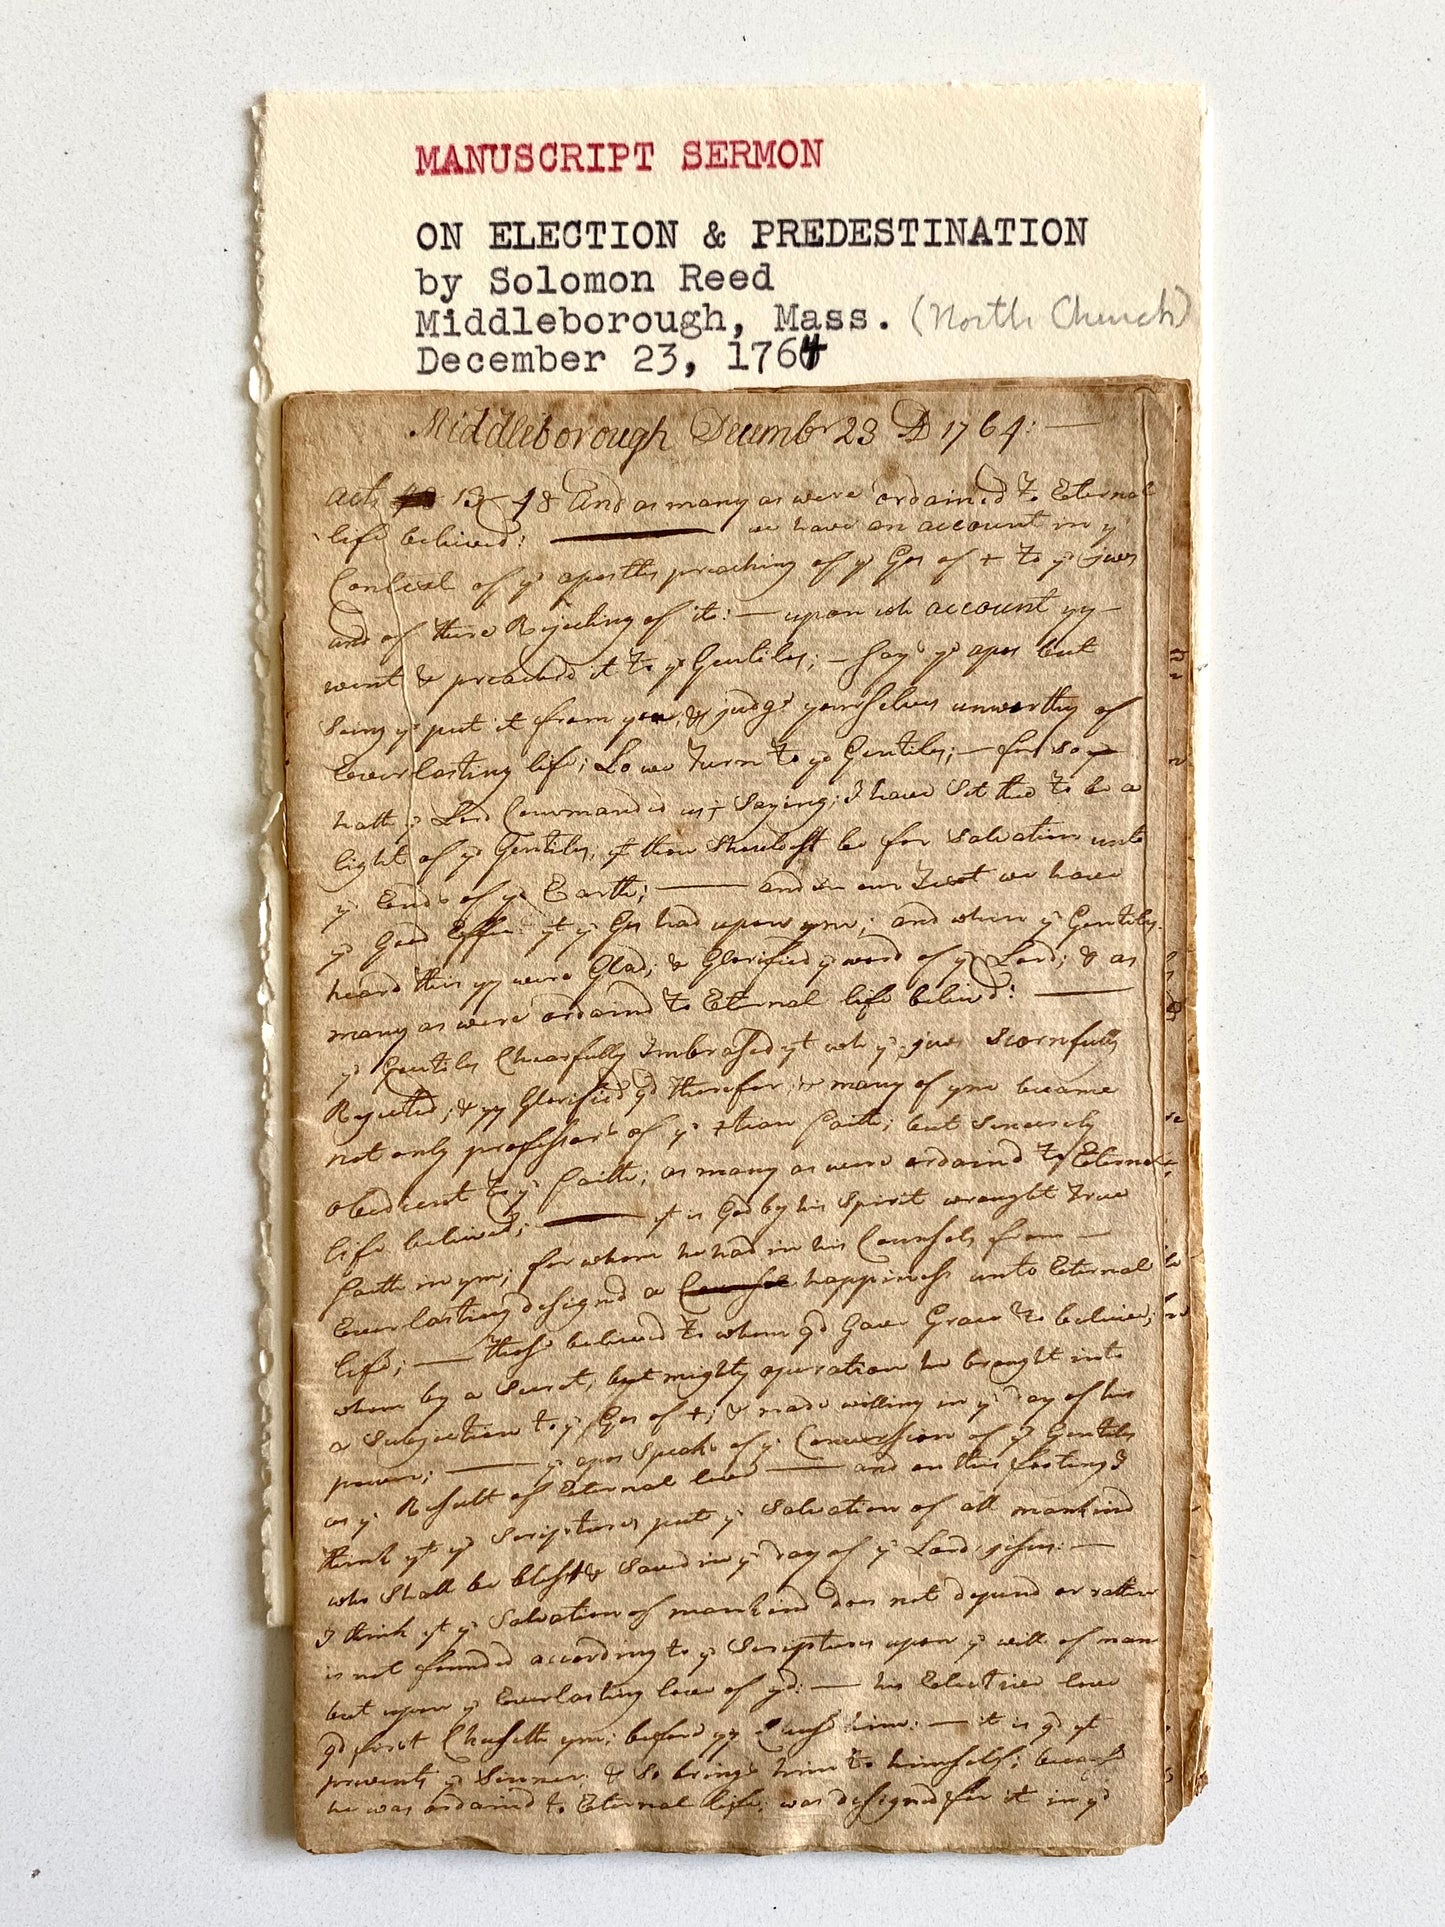 MANUSCRIPT SERMON
ON ELECTION & PREDESTINATION
by Solomon Reed
Middleborough, Mass. (North Church)
December 23, 1764
Middleborough Decembr 23 AD 1764: —
Acts 13 - 48 And as many as were ordained to Eternal
life believed: — we have an account in ye
Context of ye apostles preaching of ye Gos of + to ye jews
and of there Rejecting of it: — upon wh account yy —
went & preached it to ye Gentiles; — say ye apos but
Seing ye put it from you, & judge yourselves unworthy of
Everlasting life; Lo we Turn to ye Gentiles; — for so
hath ye Lord Commanded us, Saying; I have Set thee to be a
light of ye Gentiles, yt thou Shouldst be for Salvation unto
ye Ends of ye Earth; — and in our Text we have
ye Good Effect yt ye Gos had upon ym; and when ye Gentiles
heard this yy were Glad; & Glorified ye word of ye Lord; & as
many as were ordaind to Eternal life believd: —
ye Gentiles Chearfully Imbrased yt wh ye jews Scornfully
Rejected; & yy Glorified gd therefor; & many of ym became
not only professors of ye +tian faith; but Sincerely
obedient to ye faith; as many as were ordaind to Eternal
life believed; — yt is God by his Spirit wrought True
faith in ym; for whom he had in his Counsels from —
Everlasting designd a happiness unto Eternal
life; — those believed to whom gd Gave Grace to believe;
whom by a Secret, but mighty operation he brought into
a Subjection to ye Gos of +; & made willing in ye day of his
power; — ye apos Speaks of ye Conversion of ye Gentiles
as ye Result of Eternal love — and on this footing I
think yt ye Scriptures put ye Salvation of all mankind
who Shall be blest & Saved in ye day of ye Lord jesus: —
I think yt ye Salvation of mankind does not depend or rather
is not founded according to ye Scriptures upon ye will of man
but upon ye Everlasting love of gd: — his Elective love
gd first Chuseth ym; before yy Chuse him: — it is gd yt
prevents ye Sinner; & So brings him to himself; because
he was ordaind to Eternal life; was designed for it in ye